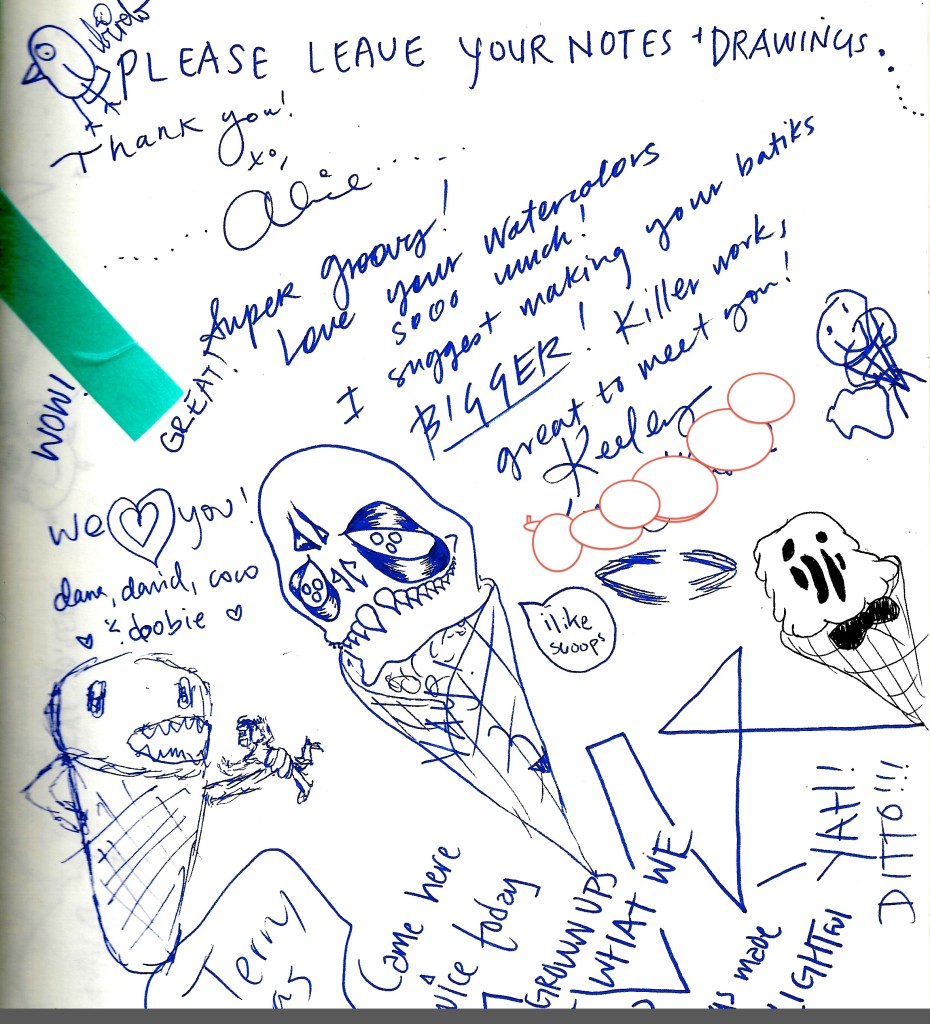 PLEASE LEAVE YOUR NOTES + DRAWINGS.
Thank you!
xo,
Alice
Super groovy!
Love your watercolors
sooo much!
I suggest making your batiks
BIGGER! Killer works
great to meet you!
Keeley
GREAT!
WOW!
we you!
dana, david, coco
& doobie
i like
scoops
YAH!
DITTO!!!
Terry
Came here
today
GROWN UPS
WHAT WE
made